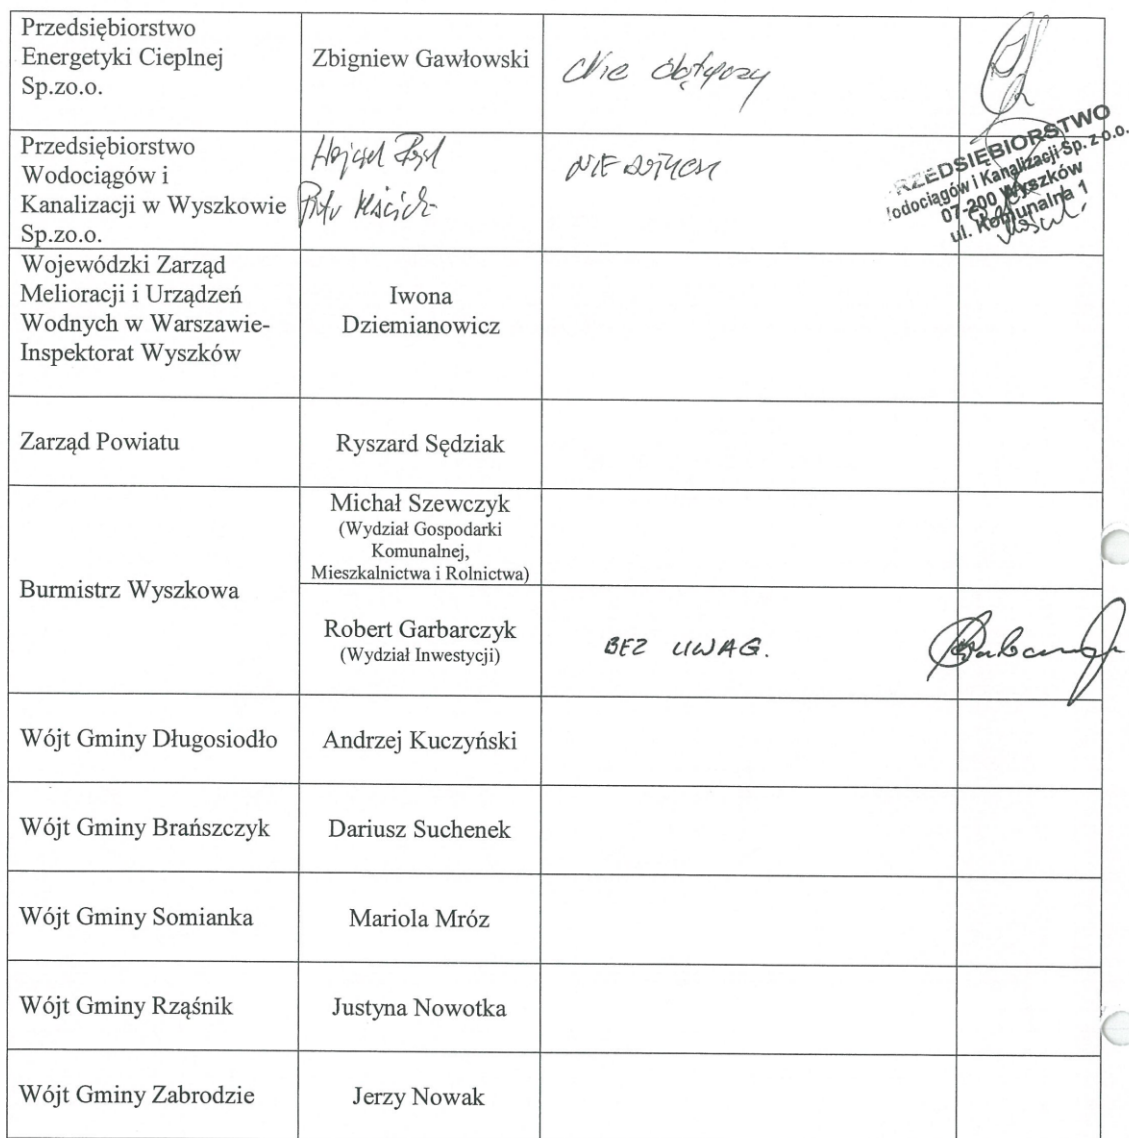 Przedsiębiorstwo
Energetyki Cieplnej
Sp.zo.o.
Zbigniew Gawłowski
Nie dotyczy
Przedsiębiorstwo
Wodociągów i
Kanalizacji w Wyszkowie
Sp.zo.o.
NIE DOTYCZY
RZEDSIĘBIORSTWO
odociągów i Kanalizacji Sp. z o.o.
07-200 Wyszków
ul. Komunalna 1
Wojewódzki Zarząd
Melioracji i Urządzeń
Wodnych w Warszawie-
Inspektorat Wyszków
Iwona
Dziemianowicz
Zarząd Powiatu
Ryszard Sędziak
Burmistrz Wyszkowa
Michał Szewczyk
(Wydział Gospodarki
Komunalnej,
Mieszkalnictwa i Rolnictwa)
Robert Garbarczyk
(Wydział Inwestycji)
BEZ UWAG.
Wójt Gminy Długosiodło
Andrzej Kuczyński
Wójt Gminy Brańszczyk
Dariusz Suchenek
Wójt Gminy Somianka
Mariola Mróz
Wójt Gminy Rząśnik
Justyna Nowotka
Wójt Gminy Zabrodzie
Jerzy Nowak